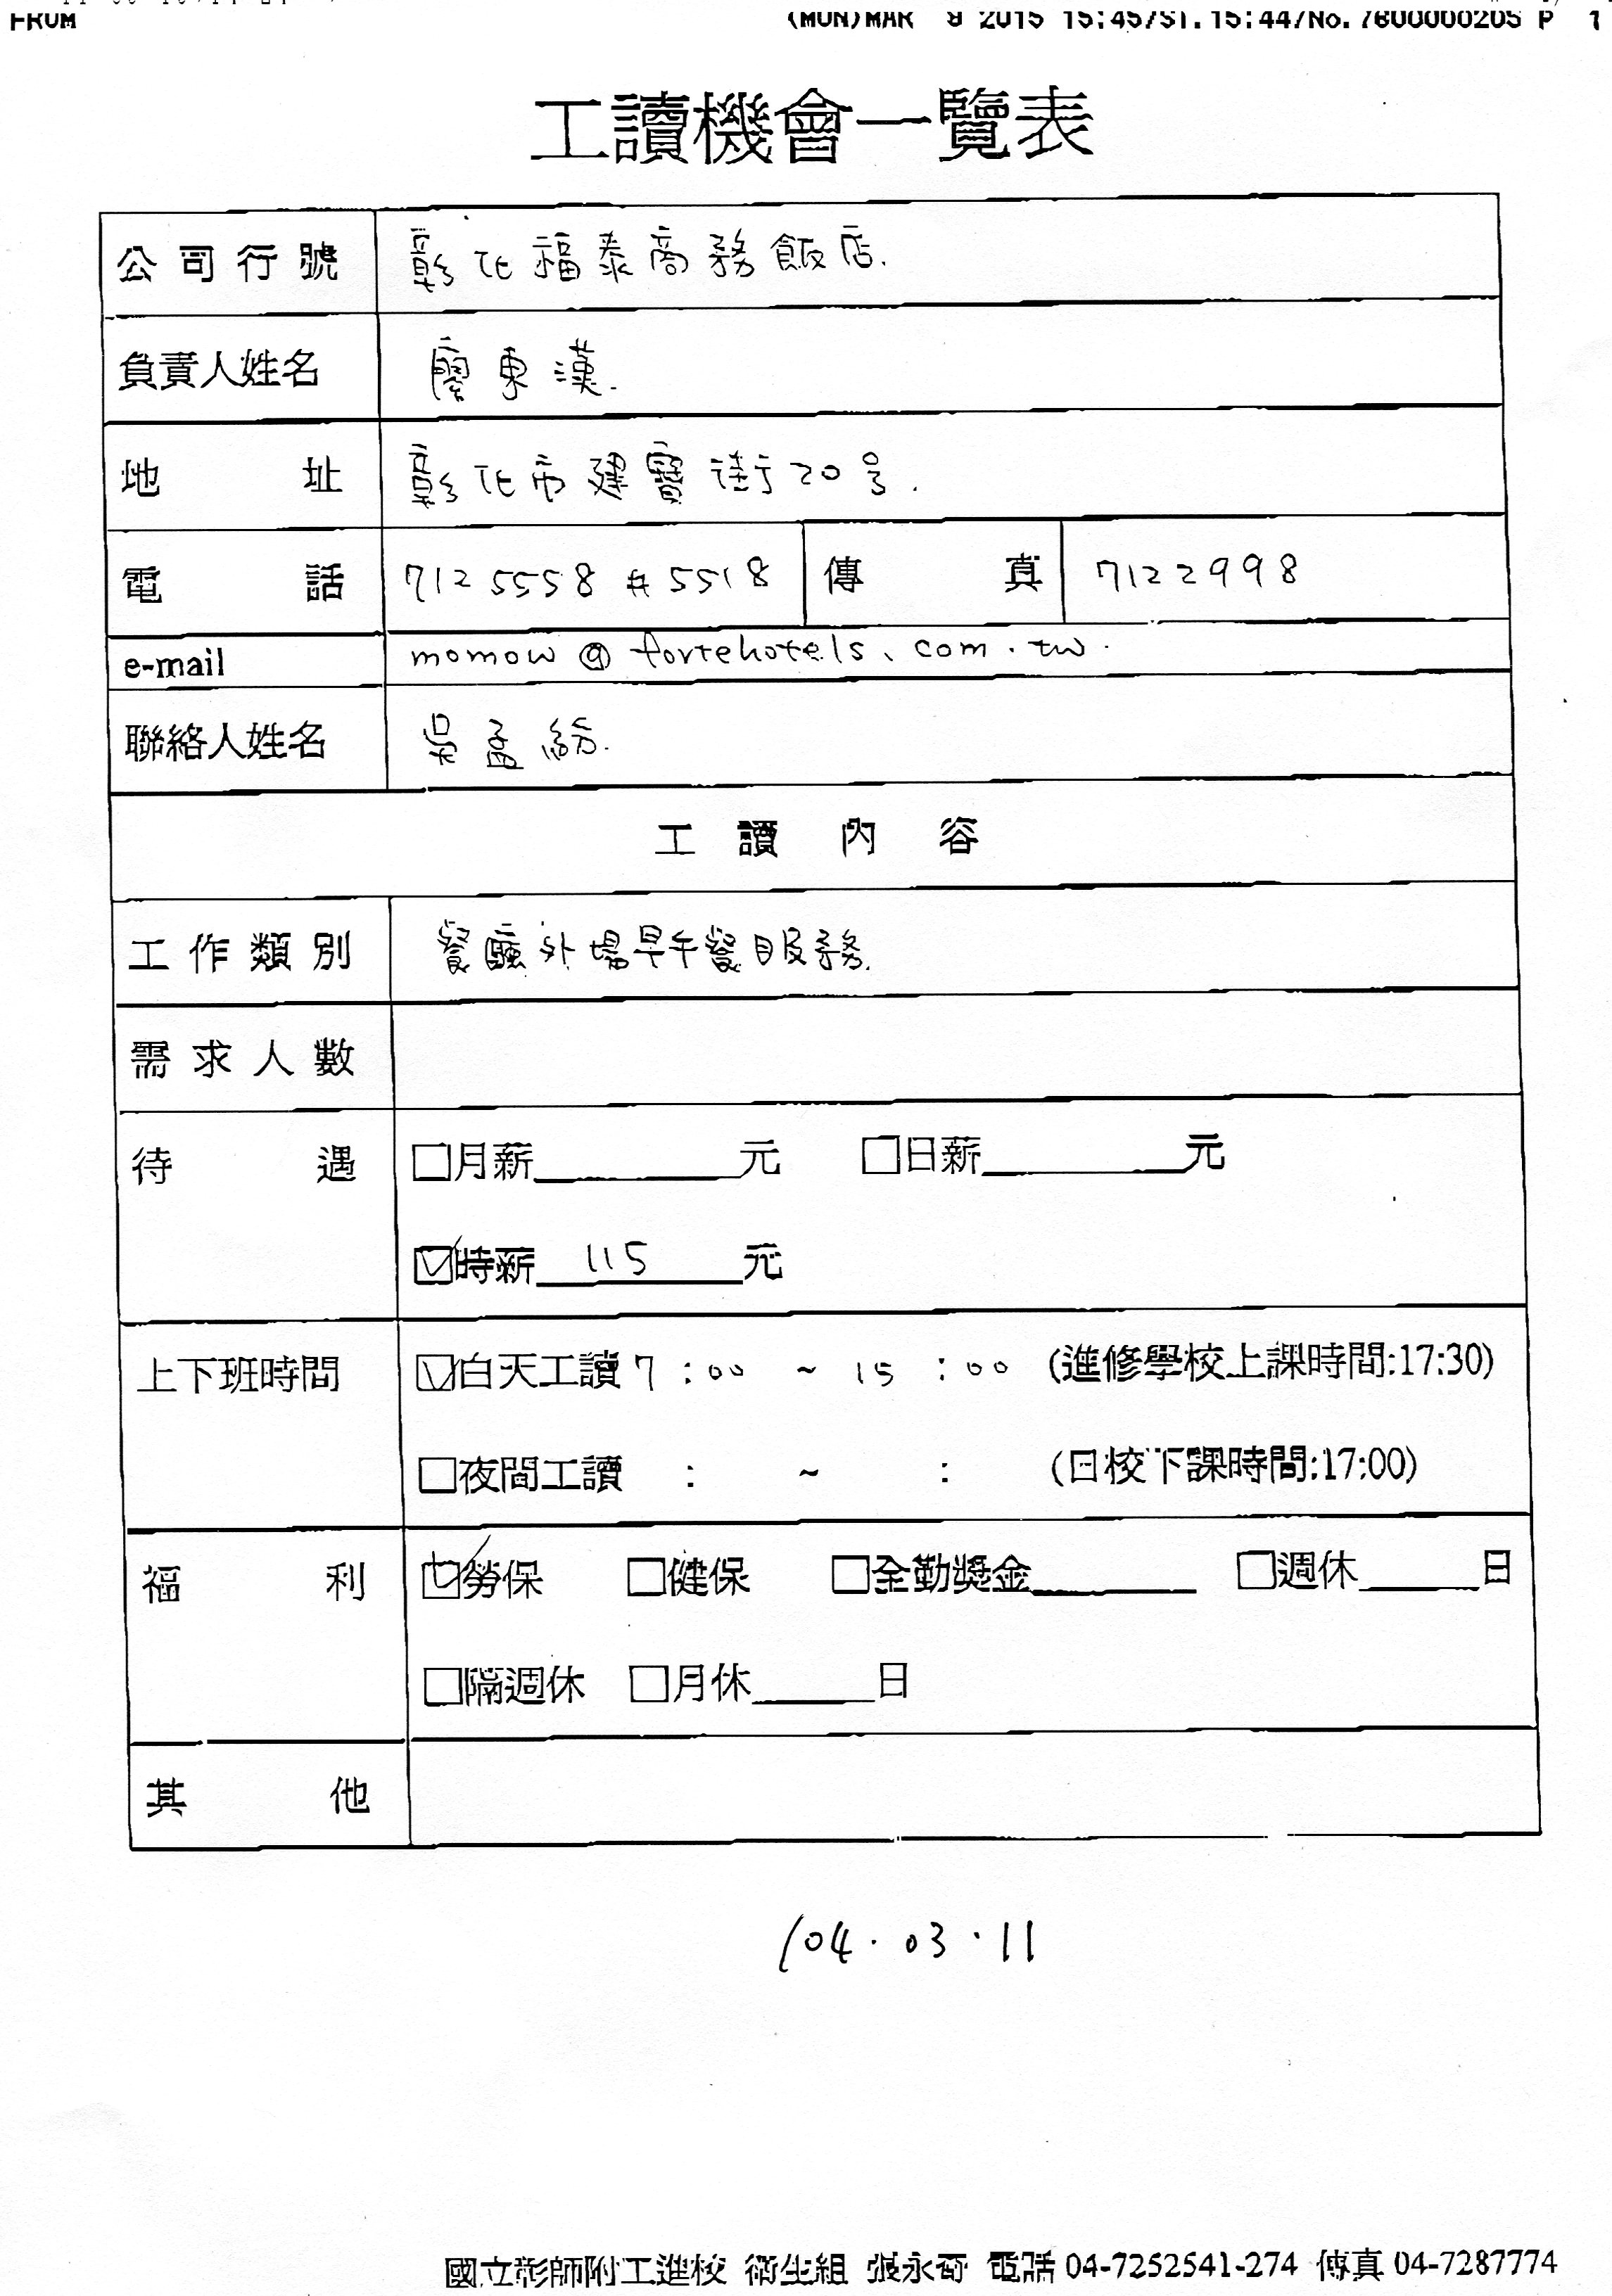 FROM (MON)MAR 9 2015 15:45/ST.15:44/No.7600000205 P 1
工讀機會一覽表
公司行號 彰化福泰商務飯店.
負責人姓名 廖東漢.
地址 彰化市建寶街20号.
電話 7125558#5518 傳真 7122998
e-mail momow@fortehotels.com.tw.
聯絡人姓名 吳孟紛.
工讀內容
工作類別 餐廳外場早午餐服務.
需求人數
待遇 □月薪______元 □日薪______元
☑時薪 115 元
上下班時間 ☑白天工讀 7:00 ~ 15:00 (進修學校上課時間:17:30)
□夜間工讀 : ~ : (日校下課時間:17:00)
福利 ☑勞保 □健保 □全勤獎金______ □週休____日
□隔週休 □月休____日
其他
104.03.11
國立彰師附工進校 衛生組 張永奇 電話 04-7252541-274 傳真 04-7287774